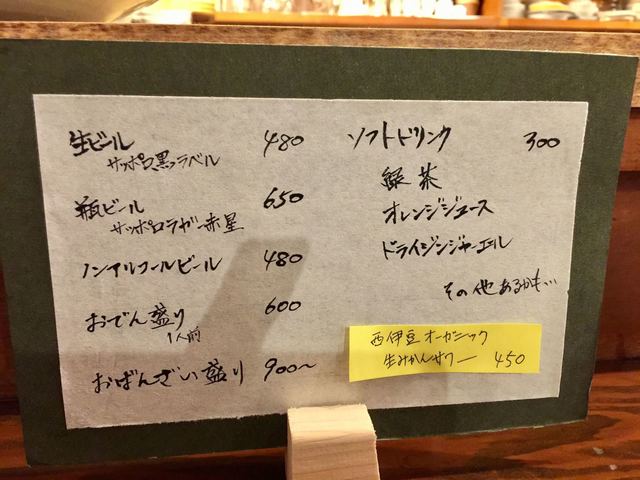 生ビール 480
サッポロ黒ラベル
瓶ビール 650
サッポロラガー赤星
ノンアルコールビール 480
おでん盛り 600
1人前
おばんざい盛り 900〜
ソフトドリンク 300
緑茶
オレンジジュース
ドライジンジャーエール
その他あるかも…
西伊豆オーガニック
生みかんサワー 450